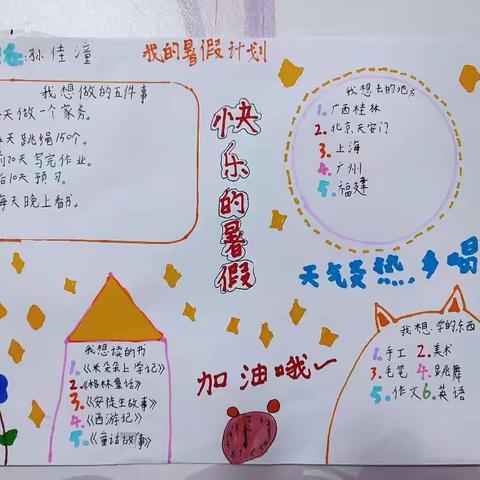 :孙佳潼
我的暑假计划
我想做的五件事
天做一个家务。
天跳绳150个。
前20天写完作业。
后10天预习。
每天晚上看书。
快乐的暑假
我想去的地方
1.广西桂林
2.北京天安门
3.上海
4.广州
5.福建
天气炎热,多喝
我想读的书
1.《米朵朵上学记》
2.《格林童话》
3.《安徒生故事》
4.《西游记》
5.《童话故事》
加油哦～
我想学的东西
1.手工 2.美术
3.毛笔 4.跳舞
5.作文 6.英语